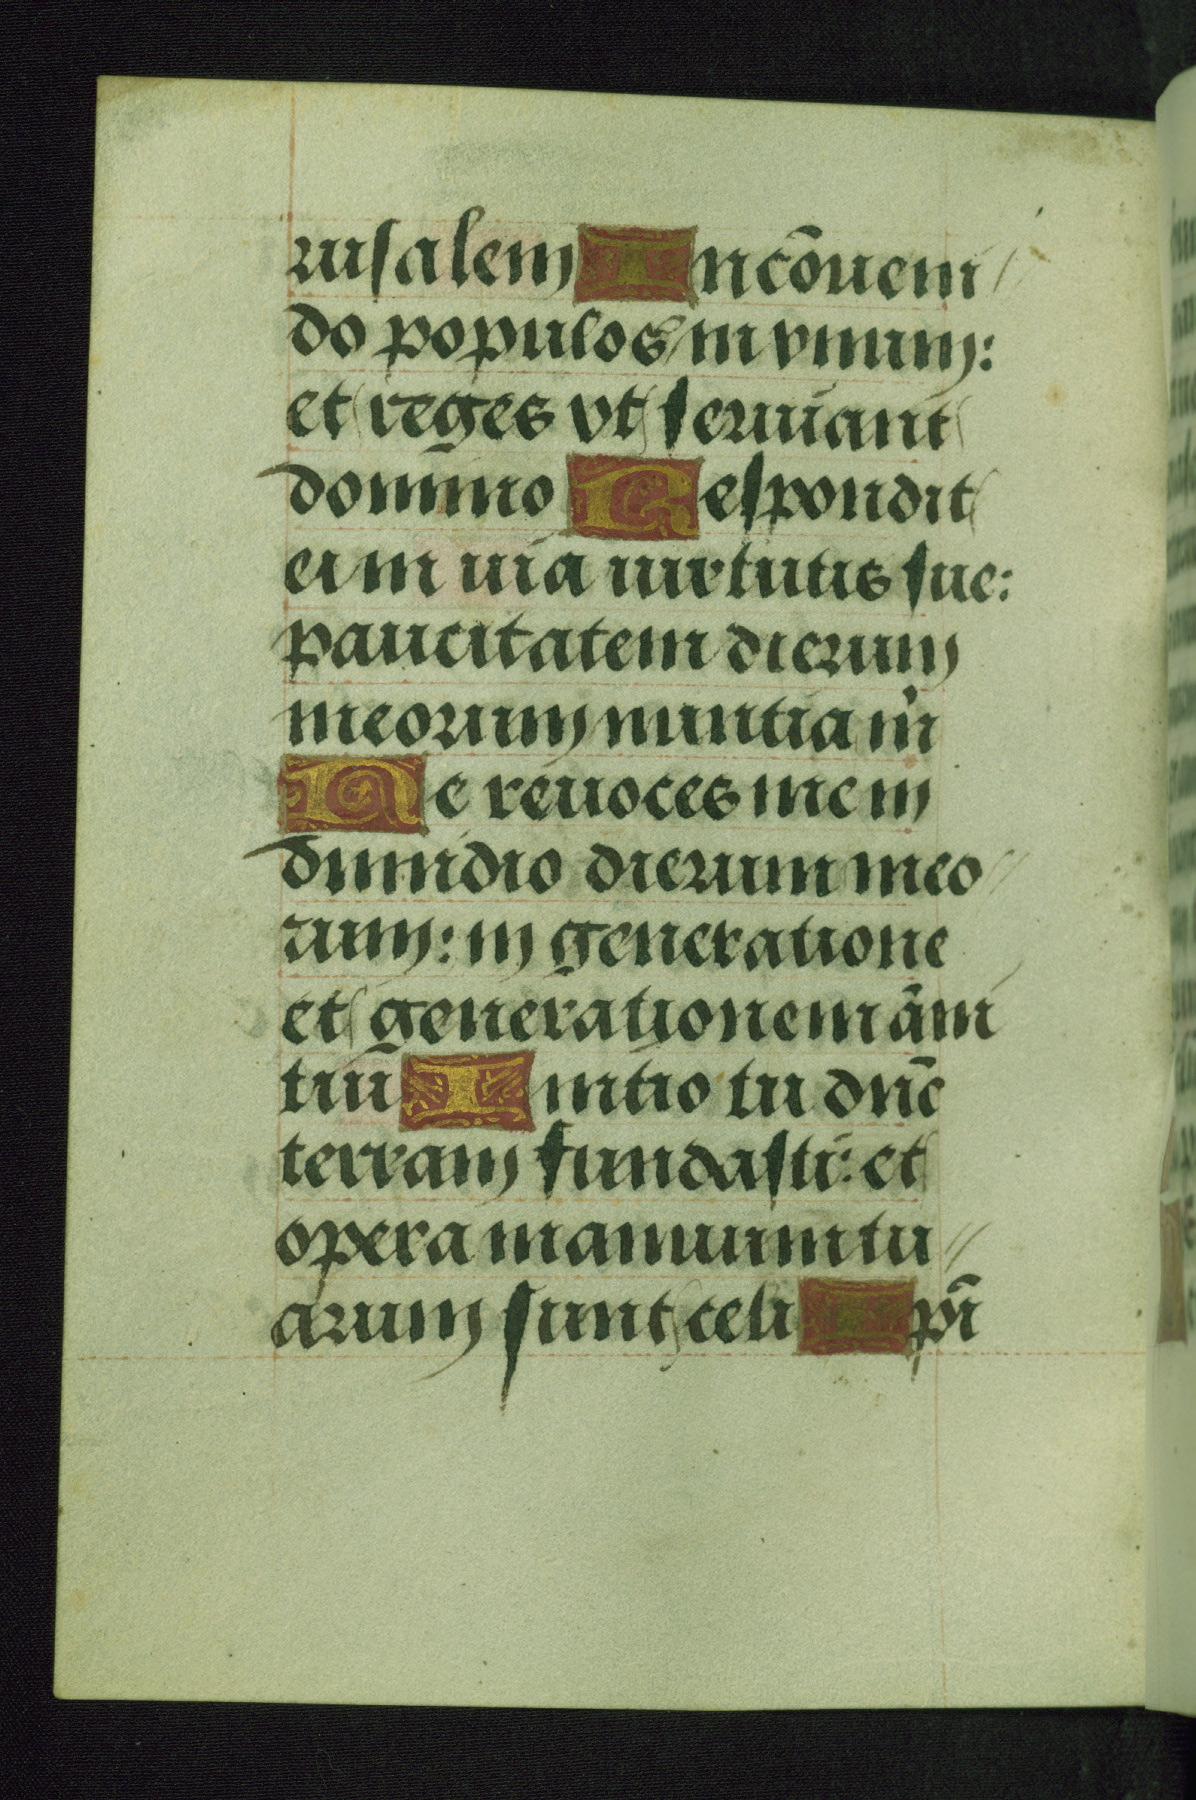 rusalem In cōueni
do populos in vnum:
et reges vt seruiant
domino Respondit
ei in uia uirtutis sue:
paucitatem dierum
meorum nuntia m̓i
Ne reuoces me in
dimidio dierum meo
rum: in generatione
et generationem ān̄i
tui Initio tu dn̄e
terram fundasti: et
opera manuum tu
arum sunt celi Ip̄i